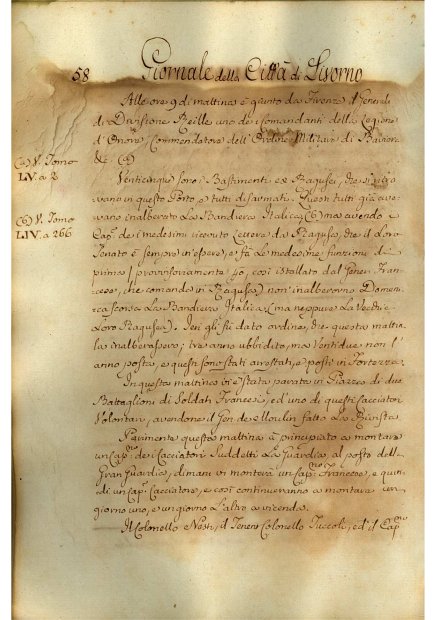 58 Giornale della Città di Livorno
Alle ore 9 di mattina è giunto da Firenze il Generale
di Divisione Reille uno de i Comandanti della Legione
d'Onore, Commendatore dell'Ordine Militare di Baviera
&c. (a)
(a) V. Tomo
LIV. a 2
Venticinque sono i Bastimenti ex Ragusei, che si ritro
vano in questo Porto, e tutti disarmati. Questi tutti già ave
vano inalberato La Bandiera Italica; (b) ma avendo i
(b) V. Tomo
LIV. a 266
Cap.ni de i medesimi ricevuto Lettera da Ragusa, che il loro
Senato è sempre in essere, e fà le medesime funzioni di
prima (provvisoriamente però, così istallato dal Gener. Fran-
cese, che comanda in Ragusa) non inalberarono Domen.
ca scorsa La Bandiera Italica, (ma neppure La Vecchia
Loro Ragusea). Ieri gli fù dato ordine, che questa matti
na l'inalberassero; tre anno ubbidito, ma Ventidue non l'
anno posta, e questi sono stati arrestati, e posti in Fortezza.
In questa mattina vi è stata parata in Piazza di due
Battaglioni di Soldati Francesi, ed uno di questi Cacciatori
Volontari, avendone il Gen. de Moulin fatto La Rivista.
Parimente questa mattina à principiato a montare
un Cap.no de i Cacciatori Suddetti La Guardia al posto della
Gran Guardia, dimani vi monterà un Cap.no Francese, e quin
di un Cap.no Cacciatore, e così continueranno a montare un
giorno uno, e un giorno l'altro a vicenda.
Il Colonello Nesti, il Tenen. Colonello Tuccoli, ed il Cap.no